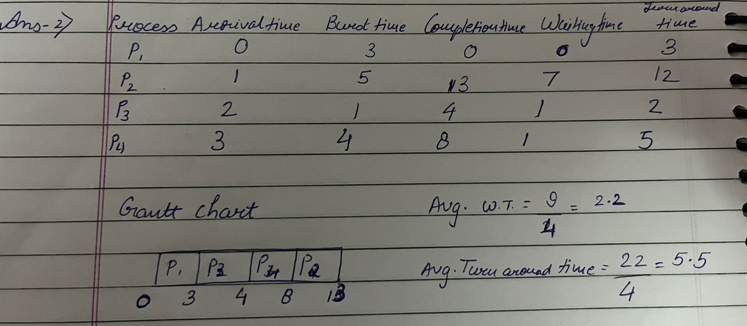 Ans-2) Process Arrival time Burst time Completion time Waiting time Turn around time
P1 0 3 0 0 3
P2 1 5 13 7 12
P3 2 1 4 1 2
P4 3 4 8 1 5
Gantt chart Avg. W.T. = 9/4 = 2.2
P1 P3 P4 P2 Avg. Turn around time = 22/4 = 5.5
0 3 4 8 13